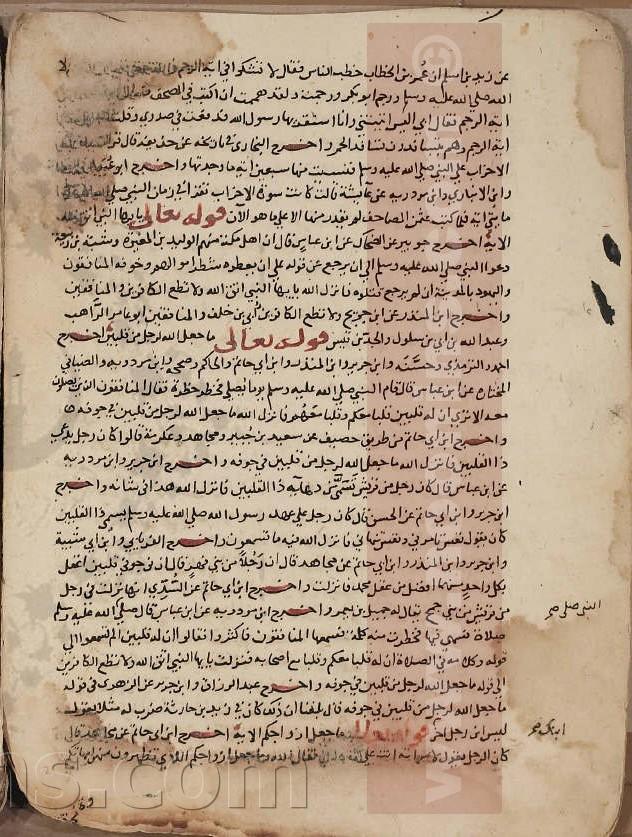 عن زيد بن اسلم ان عمر بن الخطاب خطب الناس فقال لا تشكوا في اية الرجم لا
الله صلي الله عليه وسلم ورجم ابو بكر ورجمت ولقد هممت ان اكتب في المصحف
اية الرجم فقال ابي اليس اتيتني وانا استقريها رسول الله فدفعت في صدري وقلت
اية الرجم وهم يتسافدون تسافد الحمر واخرج البخاري في تاريخه عن حذيفة قال قرات
الاحزاب علي النبي صلي الله عليه وسلم فنسيت منها سبعين اية ما وجدتها واخرج ابو عبيد
وابن الانباري وابن مردويه عن عايشة قالت كانت سورة الاحزاب تقرا في زمان النبي صلي الله
مايتي اية فلما كتب عثمن المصاحف لم يقدر منها الا علي ما هو الان قوله تعالى يايها النبي اتق الله
الاية اخرج جويبر عن الضحاك عن ابن عباس قال ان اهل مكة منهم الوليد بن المغيرة وشيبة بن ربيعة
دعوا النبي صلي الله عليه وسلم الى ان يرجع عن قوله علي ان يعطوه شطر اموالهم وخوفه المنافقون
واليهود بالمدينة ان لم يرجع قتلوه فانزل الله يايها النبي اتق الله ولا تطع الكافرين والمنافقين
واخرج ابن المنذر عن ابن جريج ولا تطع الكافرين ابي بن خلف والمنافقين ابو عامر الراهب
وعبد الله بن ابي بن سلول والجد بن قيس قوله تعالى ما جعل الله لرجل من قلبين اخرج
احمد والترمذي وحسنه وابن جرير وابن المنذر وابن ابي حاتم والحاكم وصححه وابن مردويه والضيا في
المختارة عن ابن عباس قال قام النبي صلي الله عليه وسلم يوما يصلي فخطر خطرة فقال المنافقون الذين يصلون
معه الا تري ان له قلبين قلبا معكم وقلبا معهم فانزل الله ما جعل الله لرجل من قلبين في جوفه
واخرج ابن ابي حاتم من طريق خصيف عن سعيد بن جبير ومجاهد وعكرمة قالوا كان رجل يدعي
ذا القلبين فانزل الله ما جعل الله لرجل من قلبين في جوفه واخرج ابن جرير وابن مردويه
عن ابن عباس قال كان رجل من قريش يسمي من دهايه ذا القلبين فانزل الله هذا في شانه واخرج
ابن جرير وابن ابي حاتم عن الحسن قال كان رجل علي عهد رسول الله صلي الله عليه وسلم يسمي ذا القلبين
كان يقول نفس تامرني ونفس تنهاني فانزل الله فيه ما تسمعون واخرج الفريابي وابن ابي شيبة
وابن جرير وابن المنذر وابن ابي حاتم عن مجاهد قال ان رجلا من بني فهر قال ان في جوفي قلبين اعقل
بكل واحد منهما افضل من عقل محمد فنزلت واخرج ابن ابي حاتم عن السدي انها نزلت في رجل
من قريش من بني جمح يقال له جميل بن معمر واخرج ابن مردويه عن ابن عباس قال صلي الله عليه وسلم
صلاة فسهي فيها فخطرت منه كلمة فسمعها المنافقون فاكثروا فقالوا ان له قلبين الم تسمعوا الي
قوله وكلامه في الصلاة ان له قلبا معكم وقلبا مع اصحابه فنزلت يايها النبي اتق الله ولا تطع الكافرين
الي قوله ما جعل الله لرجل من قلبين في جوفه واخرج عبد الرزاق وابن جرير عن الزهري في قوله
ما جعل الله لرجل من قلبين في جوفه قال بلغنا ان ذلك كان في زيد بن حارثة ضرب له مثلا يقول
ليس ابن رجل اخر قوله تعالى وما جعل ازواجكم الاية اخرج ابن ابي حاتم عن مجاهد قال
كان الرجل يقول لامراته انت علي كظهر امي فقال الله وما جعل ازواجكم اللاي تظهرون منهن امهاتكم
النبي صلي صح
ابنك صح